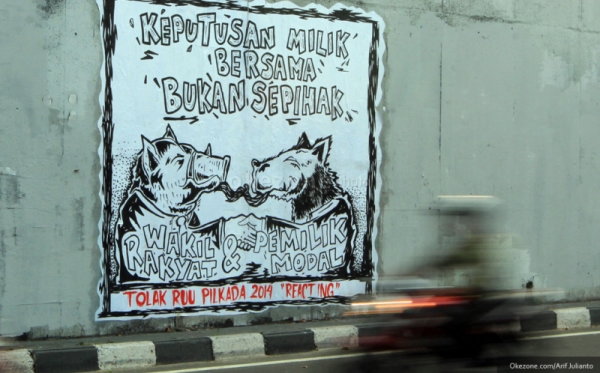 KEPUTUSAN MILIK
BERSAMA
BUKAN SEPIHAK
WAKIL
RAKYAT
&
PEMILIK
MODAL
TOLAK RUU PILKADA 2014 "REACTING"
Okezone.com/Arif Julianto